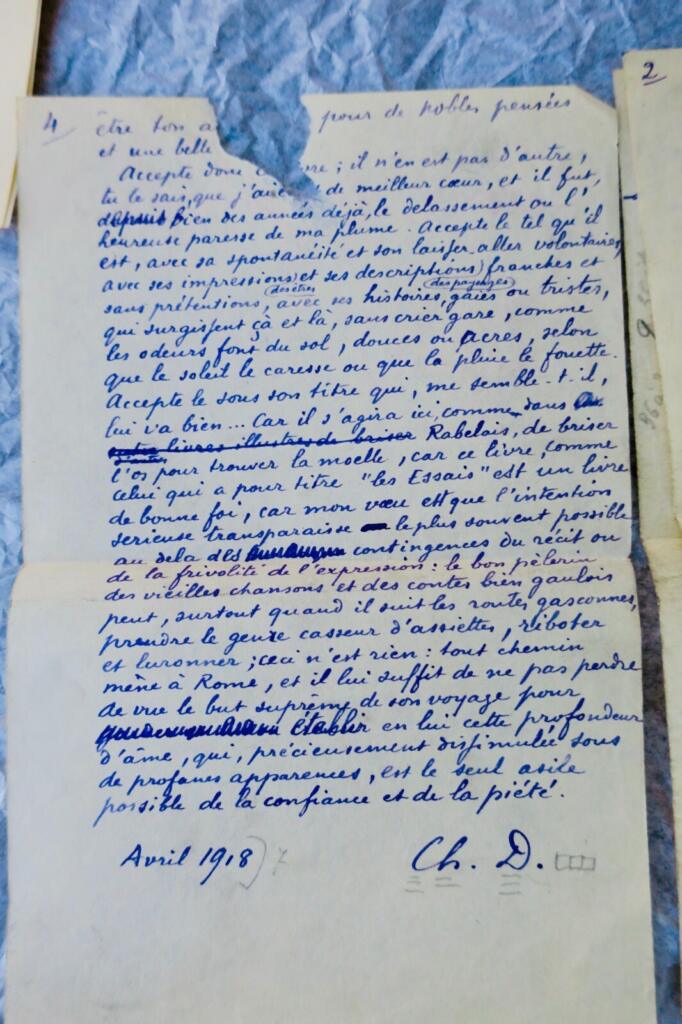 4
être bon a pour de nobles pensées
et une belle
Accepte donc ce livre ; il n'en est pas d'autre,
tu le sais, que j'aie de meilleur cœur, et il fut,
depuis bien des années déjà, le délassement ou l'
heureuse paresse de ma plume. Accepte le tel qu'il
est, avec sa spontanéité et son laisser aller volontaires,
avec ses impressions et ses descriptions franches et
des êtres des paysages
sans prétentions, avec ses histoires, gaies ou tristes,
qui surgissent çà et là, sans crier gare, comme
les odeurs font du sol, douces ou âcres, selon
que le soleil le caresse ou que la pluie le fouette.
Accepte le sous son titre qui, me semble-t-il,
lui va bien... Car il s'agira ici, comme dans
livres illustres de briser Rabelais, de briser
d'autres
l'os pour trouver la moelle, car ce livre, comme
celui qui a pour titre "les Essais" est un livre
de bonne foi, car mon vœu est que l'intention
sérieuse transparaisse le plus souvent possible
au delà des contingences du récit ou
de la frivolité de l'expression : le bon pèlerin
des vieilles chansons et des contes bien gaulois
peut, surtout quand il suit les routes gasconnes,
prendre le genre casseur d'assiettes, riboter
et luronner ; ceci n'est rien : tout chemin
mène à Rome, et il lui suffit de ne pas perdre
de vue le but suprême de son voyage pour
établir en lui cette profondeur
d'âme, qui, précieusement dissimulée sous
de profanes apparences, est le seul asile
possible de la confiance et de la piété.
Avril 1918
Ch. D.
2